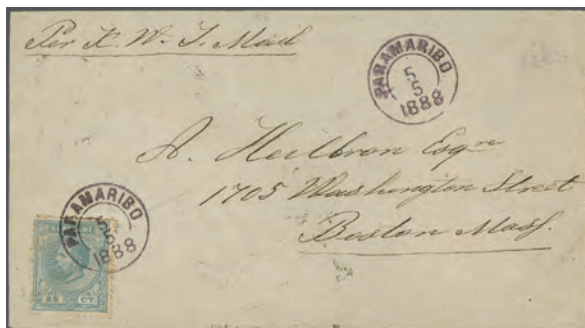 Per K. W. I. Mail
PARAMARIBO
5
5
1888
A. Heilbron Esqre
1705 Washington Street
Boston Mass.
PARAMARIBO
5
5
1888
25 CT.